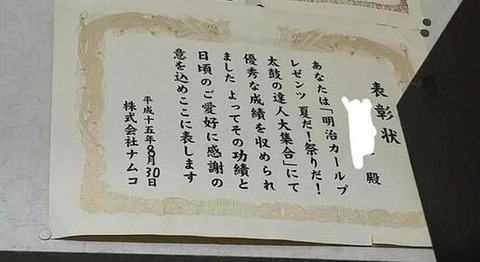 表彰状
殿
あなたは「明治カールプ
レゼンツ 夏だ!祭りだ!
太鼓の達人大集合」にて
優秀な成績を収められ
ました よってその功績と
日頃のご愛好に感謝の
意を込めここに表します
平成十五年8月30日
株式会社ナムコ